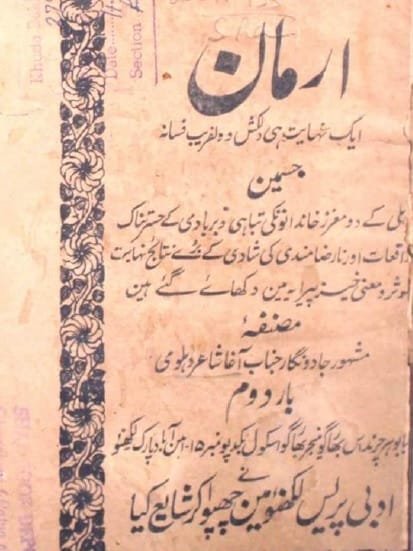 ارمان
ایک نہایت ہی دلکش و دلفریب فسانہ
جسمین
دہلی کے دو معزز خاندانونکی تباہی و بربادی کے حسرتناک
واقعات اور نارضامندی کی شادی کے بُرے نتائج نہایت
موثر و معنی خیز پیرایہ مین دکھائے گئے ہین
مصنفہٴ
مشہور جادو نگار جناب آغا شاعر دہلوی
بار دوم
بابو ہرچندس بھارگو منیجر بھارگو اسکول بکڈپو نمبر ۱۵- امین آباد پارک لکھنؤ نے
ادبی پریس لکھنؤ مین چھپوا کر شایع کیا
Date
Section